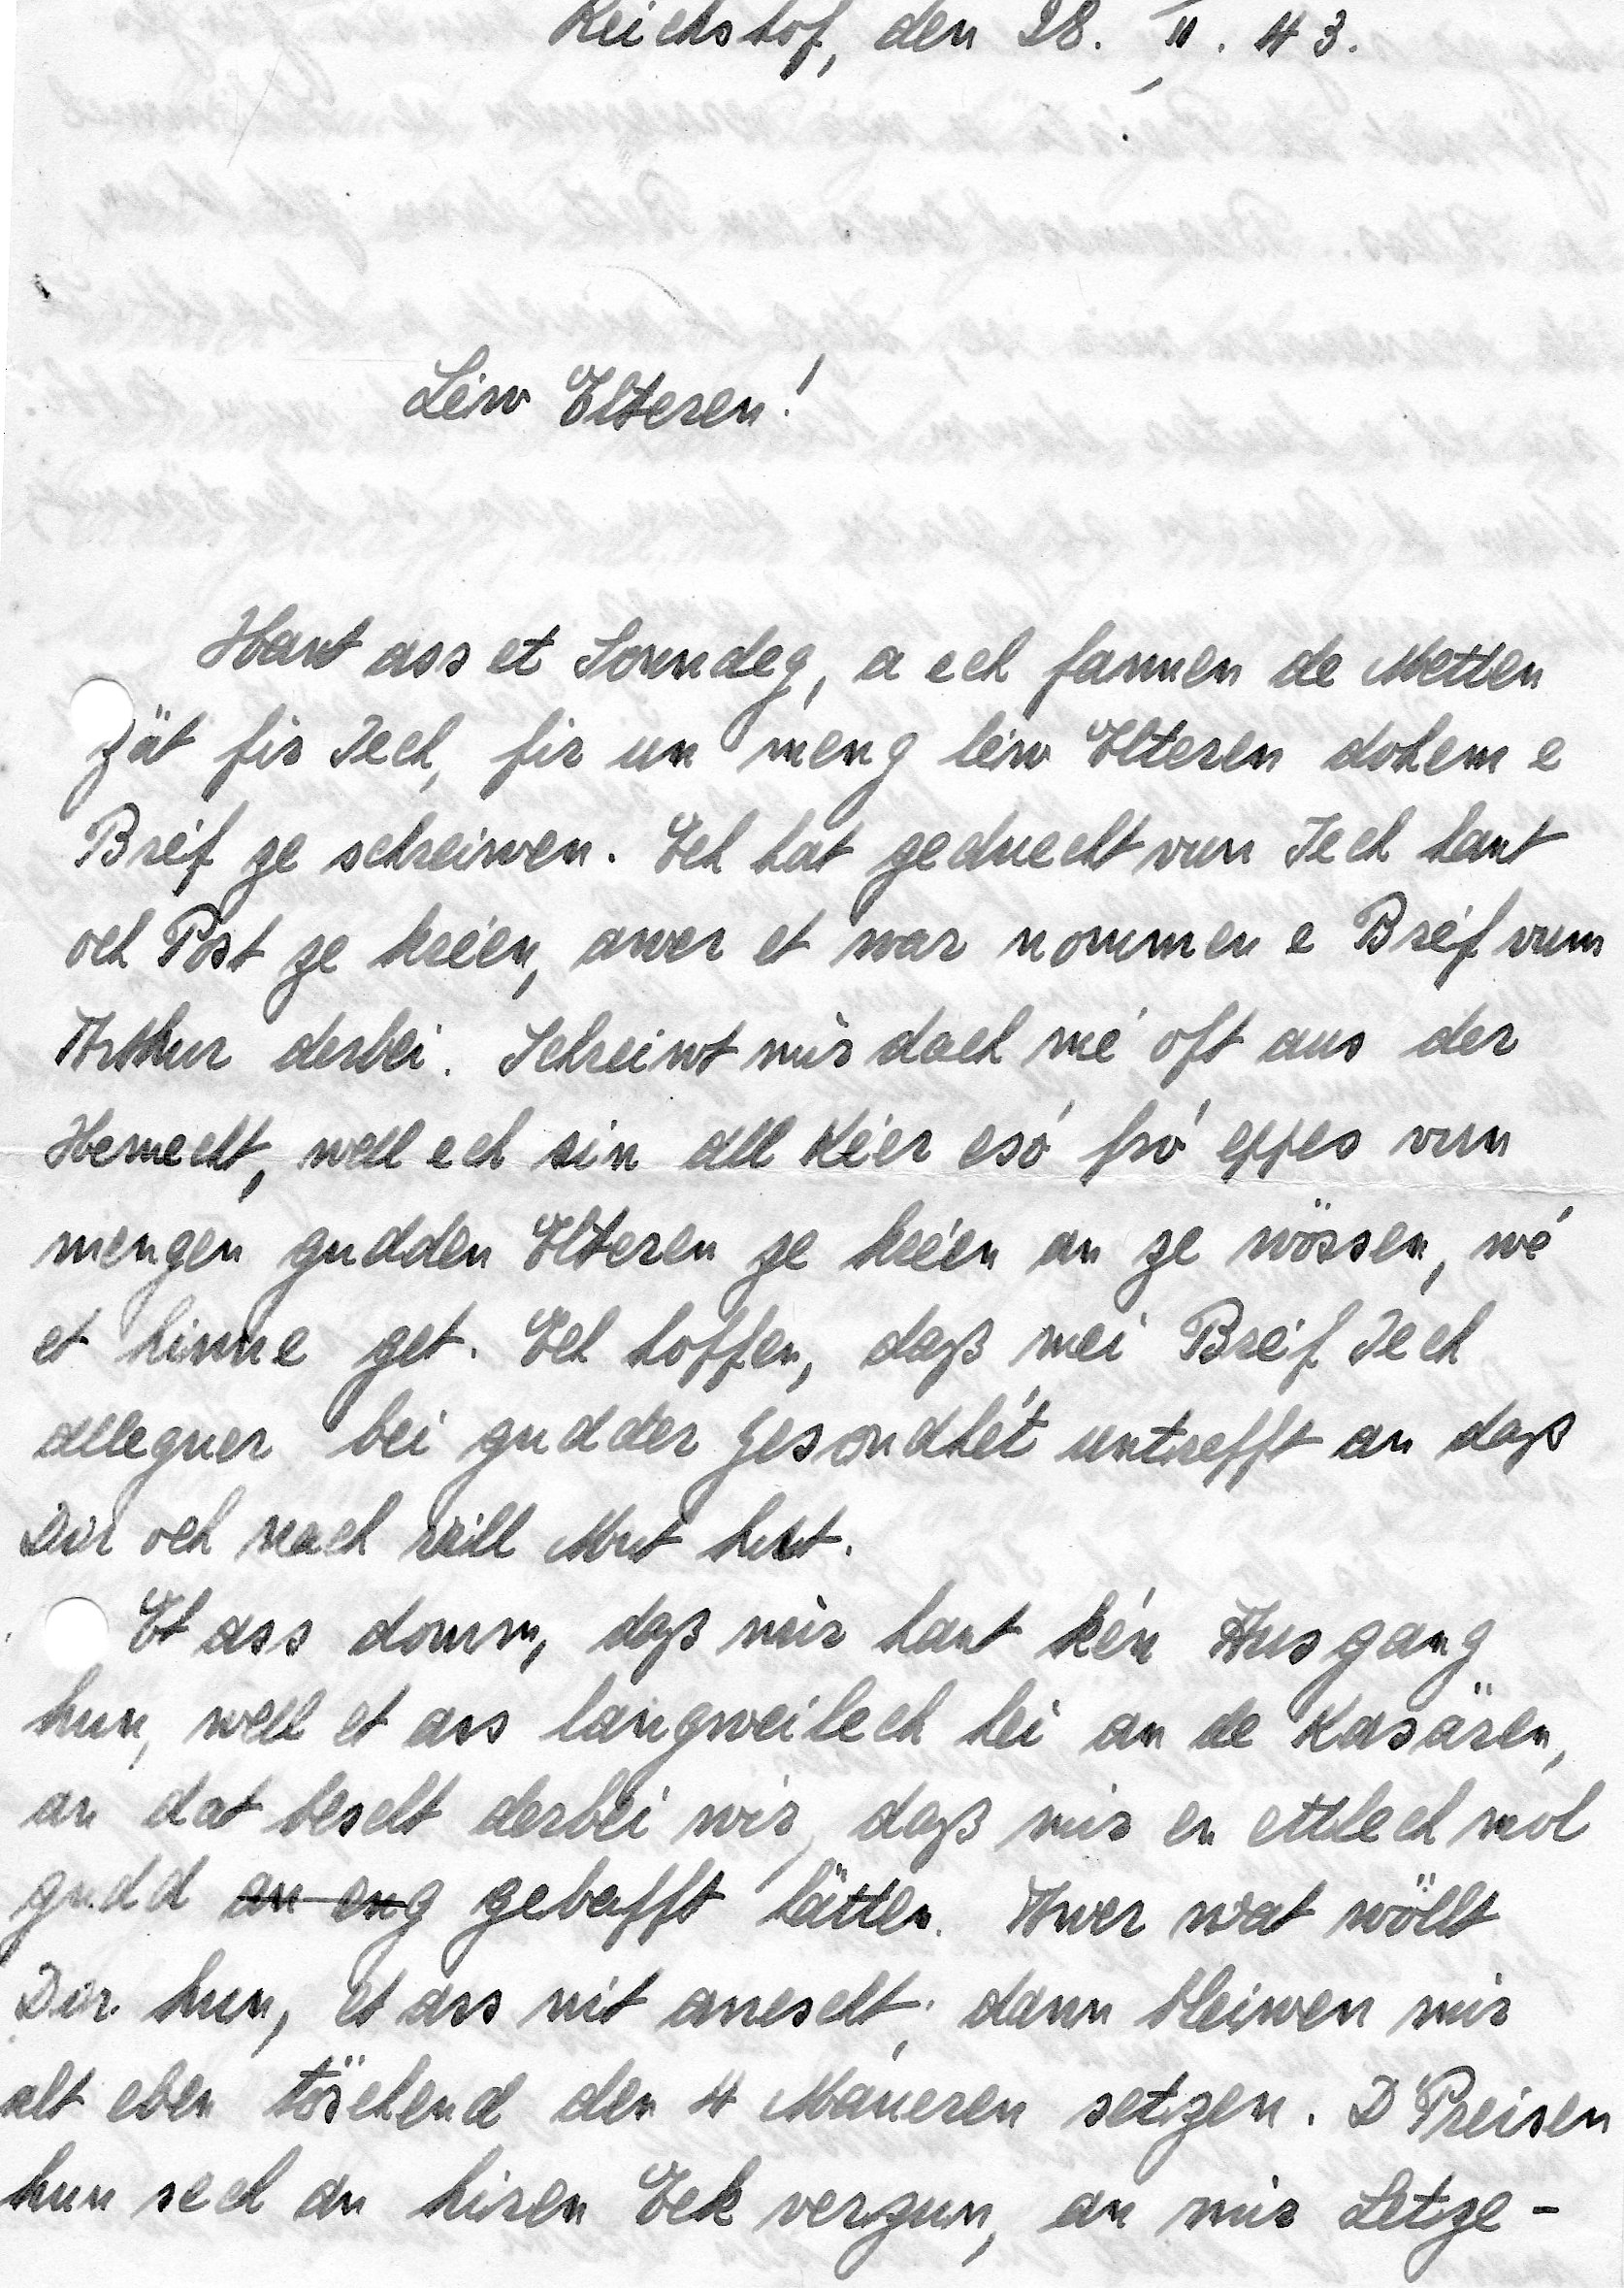 Reichshof, den 28. II. 43.
Léiw Elteren!
Haut ass et Sonndeg, a ech fannen de Metten
Zät fir Iech, fir un meng léiw Elteren dohem e
Bréif ze schreiwen. Ech hat geduecht vun Iech haut
och Post ze kréen, awer et war nommen e Bréif vum
Arthur derbei. Schreiwt mir dach mé oft aus der
Hemecht, well ech sin all Kéier esó fró eppes vun
mengen gudden Elteren ze kréen an ze wössen, wé
et hinne get. Ech hoffen, daß mei Bréif Iech
alleguer bei gudder Gesondhét untrefft an daß
Dir och nach vill Mut hut.
Et ass domm, daß mir haut kén Ausgang
hun, well et ass langweilech hei an de Kasären,
an dat bescht derbei wir, daß mir en ettlech mol
gudd an eng gebafft hätten. Awer wat wöllt
Dir hun, et ass nit anescht, dann bleiwen mir
alt eben töschend den 4 Maueren setzen. D'Preisen
hun sech an hiren Eck verzun, an mir Letze-